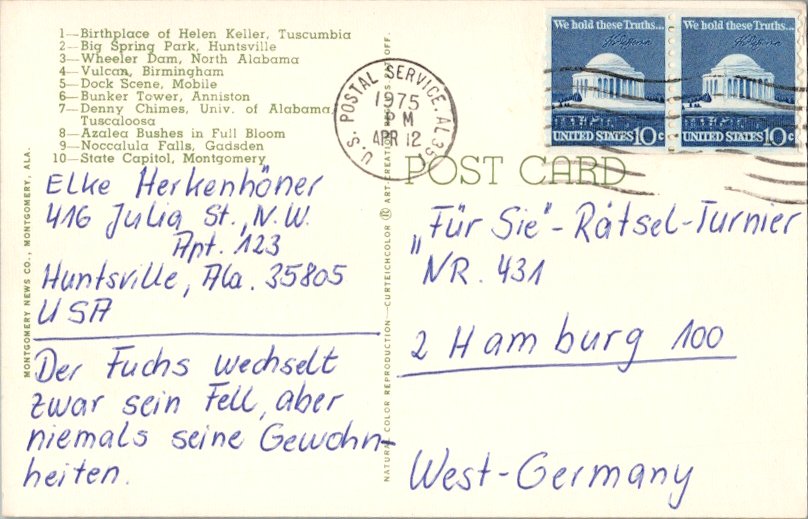 1—Birthplace of Helen Keller, Tuscumbia
2—Big Spring Park, Huntsville
3—Wheeler Dam, North Alabama
4—Vulcan, Birmingham
5—Dock Scene, Mobile
6—Bunker Tower, Anniston
7—Denny Chimes, Univ. of Alabama,
Tuscaloosa
8—Azalea Bushes in Full Bloom
9—Noccalula Falls, Gadsden
10—State Capitol, Montgomery
MONTGOMERY NEWS CO., MONTGOMERY, ALA.
Elke Herkenhöner
416 Julia St., N.W.
Apt. 123
Huntsville, Ala. 35805
USA
Der Fuchs wechselt
zwar sein Fell, aber
niemals seine Gewohn-
heiten.
NATURAL COLOR REPRODUCTION—CURTEICHCOLOR ® ART-CREATION OFF.
U.S. POSTAL SERVICE, AL 35
1975
PM
APR 12
We hold these Truths...
UNITED STATES 10c
We hold these Truths...
UNITED STATES 10c
POST CARD
„Für Sie"-Rätsel-Turnier
NR. 431
2 Hamburg 100
West-Germany